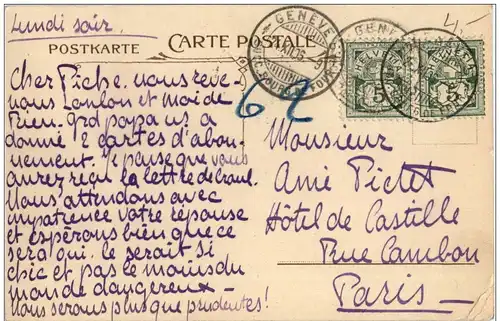 Lundi soir.
POSTKARTE
CARTE POSTALE
GENÈVE
62
5
5
4,-
Cher Piche, nous reve-
nous Loulou et moi de
Rien. Grd papa ns a
donné 2 cartes d'abon-
nement. Je pense que vous
aurez reçu la lettre de
Nous attendons avec
impatience votre réponse
et espérons bien que ce
sera oui. Ce serait si
chic et pas le moins du
monde dangereux -
Nous serons plus que prudentes!
Monsieur
Amé Pictet
Hôtel de Castille
Rue Cambon
Paris -